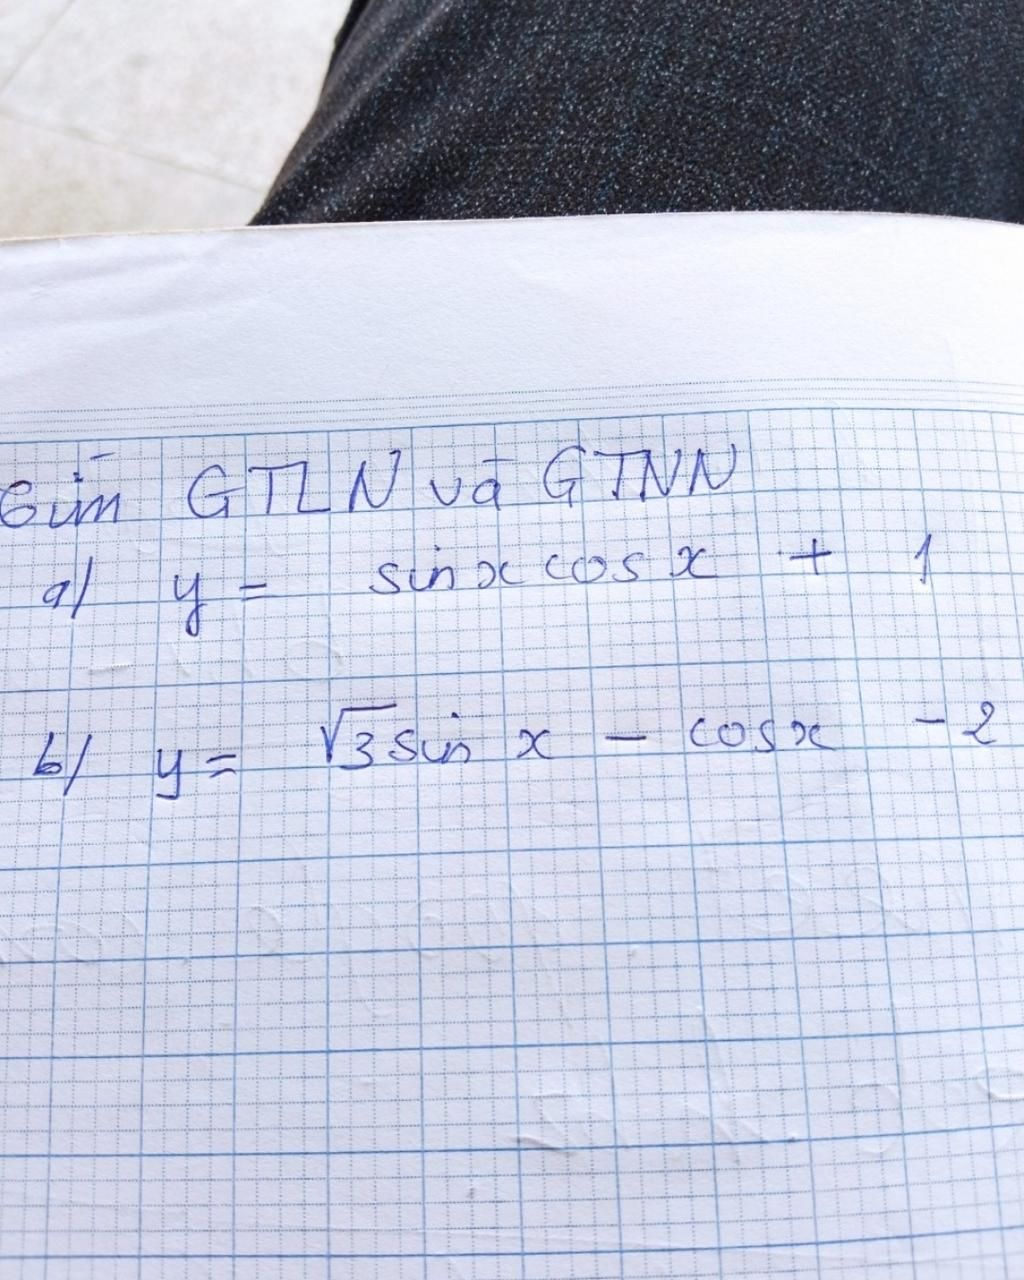 Tìm GTLN và GTNN
a/ y = sinx cosx + 1
b/ y = √3 sin x - cosx - 2